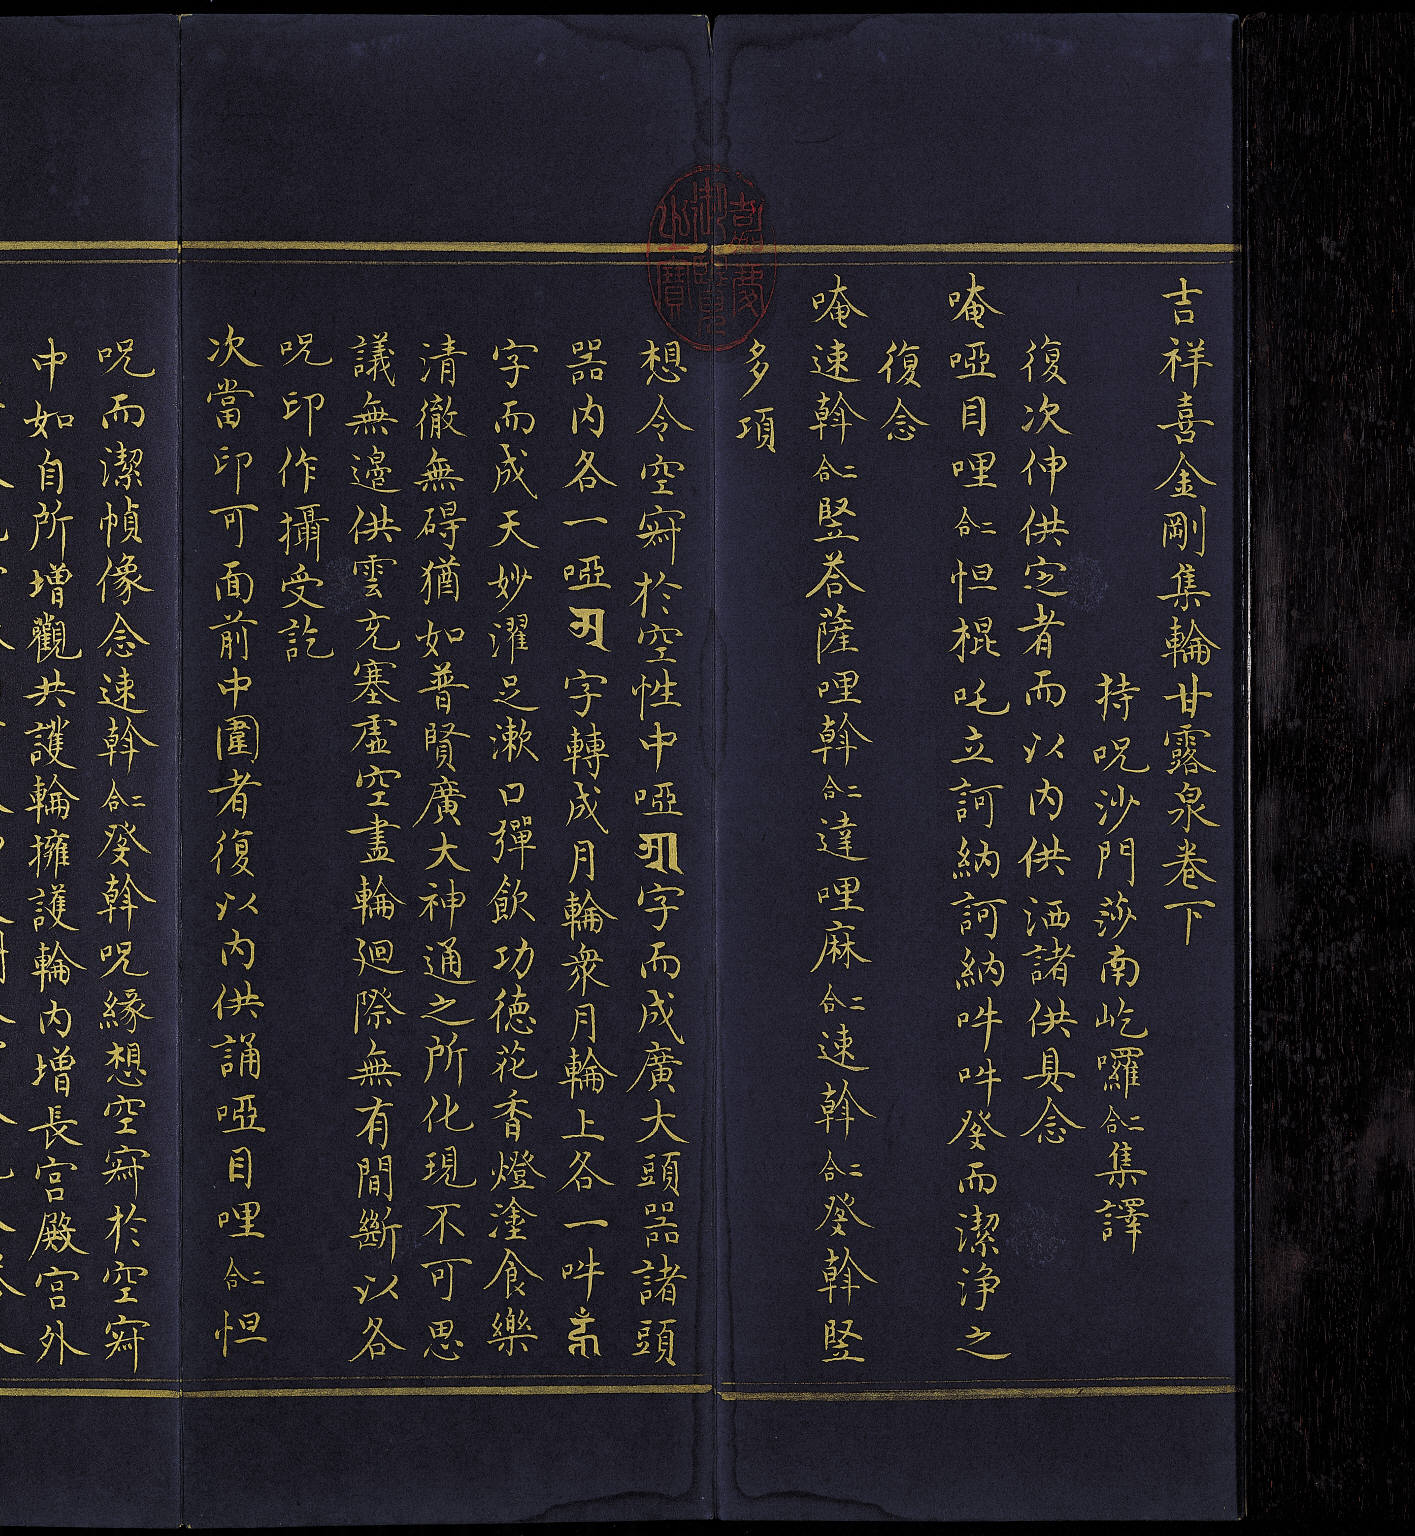 吉祥喜金剛集輪甘露泉卷下
持呪沙門莎南屹囉二合集譯
復次伸供定者而以内供洒諸供具念
唵啞目哩二合怛棍吒立訶納訶納吽吽癹而潔浄之
復念
唵速斡二合竪荅薩哩斡二合達哩麻二合速斡二合癹斡竪
多項
想令空寂於空性中啞字而成廣大頭器諸頭
器内各一啞字轉成月輪衆月輪上各一吽
字而成天妙濯足漱口彈飲功德花香燈塗食樂
清徹無碍猶如普賢廣大神通之所化現不可思
議無邊供雲充塞虛空盡輪廻際無有間斷以各
呪印作攝受訖
次當印可面前中圍者復以内供誦啞目哩二合怛
呪而潔幀像念速斡二合癹斡呪緣想空寂於空寂
中如自所增觀共護輪擁護輪内增長宫殿宫外